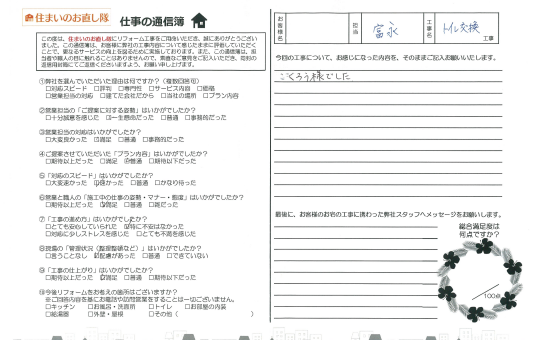 住まいのお直し隊 仕事の通信簿
この度は、住まいのお直し隊にリフォーム工事をご用命いただき、誠にありがとうござい
ました。この通信簿は、お客様に弊社の工事内容について感じたままに評価していただく
ことで、更なるサービスの向上を図るために実施しております。また、この通信簿は、担
当者や職人の目にもふれることがありますので、率直なご意見をご記入いただき、毎封の
返信用封筒にてご返送くださいますよう、お願い申し上げます。
①弊社を選んでいただいた理由は何ですか？（複数回答可）
□対応スピード □評判 □専門性 □サービス内容 □価格
□営業担当の対応 □建てた会社だから □当社の場所 □プラン内容
②営業担当の「ご提案に対する姿勢」はいかがでしたか？
□十分誠意を感じた □一生懸命だった □普通 □事務的だった
③営業担当の対応はいかがでしたか？
□大変良かった □満足 □普通 □事務的だった
④ご提案させていただいた「プラン内容」はいかがでしたか？
□期待以上だった □満足 □普通 □期待以下だった
⑤「対応のスピード」はいかがでしたか？
□大変速かった □速かった □普通 □かなり待った
⑥営業と職人の「施工中の仕事の姿勢・マナー・態度」はいかがでしたか？
□期待以上だった □満足 □普通 □雑だった
⑦「工事の進め方」はいかがでしたか？
□とても安心していられた □特に不安はなかった
□対応に少しストレスを感じた □とても不満を感じた
⑧現場の「管理状況（整理整頓など）」はいかがでしたか？
□言うことなし □配慮があった □普通 □できていない
⑨「工事の仕上がり」はいかがでしたか？
□期待以上だった □満足 □普通 □期待以下だった
⑩今後リフォームをお考えの箇所はございますか？
※ご回答内容を基にお電話や訪問営業をすることは一切ございません。
□キッチン □お風呂・洗面所 □トイレ □お部屋の内装
□給湯器 □外壁・屋根 □その他（ ）
お客様名 担当 富永 工事名 トイレ交換 工事
今回の工事について、お感じになった内容を、そのままご記入お願いいたします。
ごくろう様でした
最後に、お客様のお宅の工事に携わった弊社スタッフへメッセージをお願いします。
総合満足度は
何点ですか？
／100点